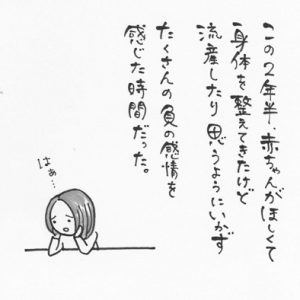 この2年半、赤ちゃんがほしくて
身体を整えてきたけど
流産したり思うようにいかず
たくさんの負の感情を
感じた時間だった。
はぁ…